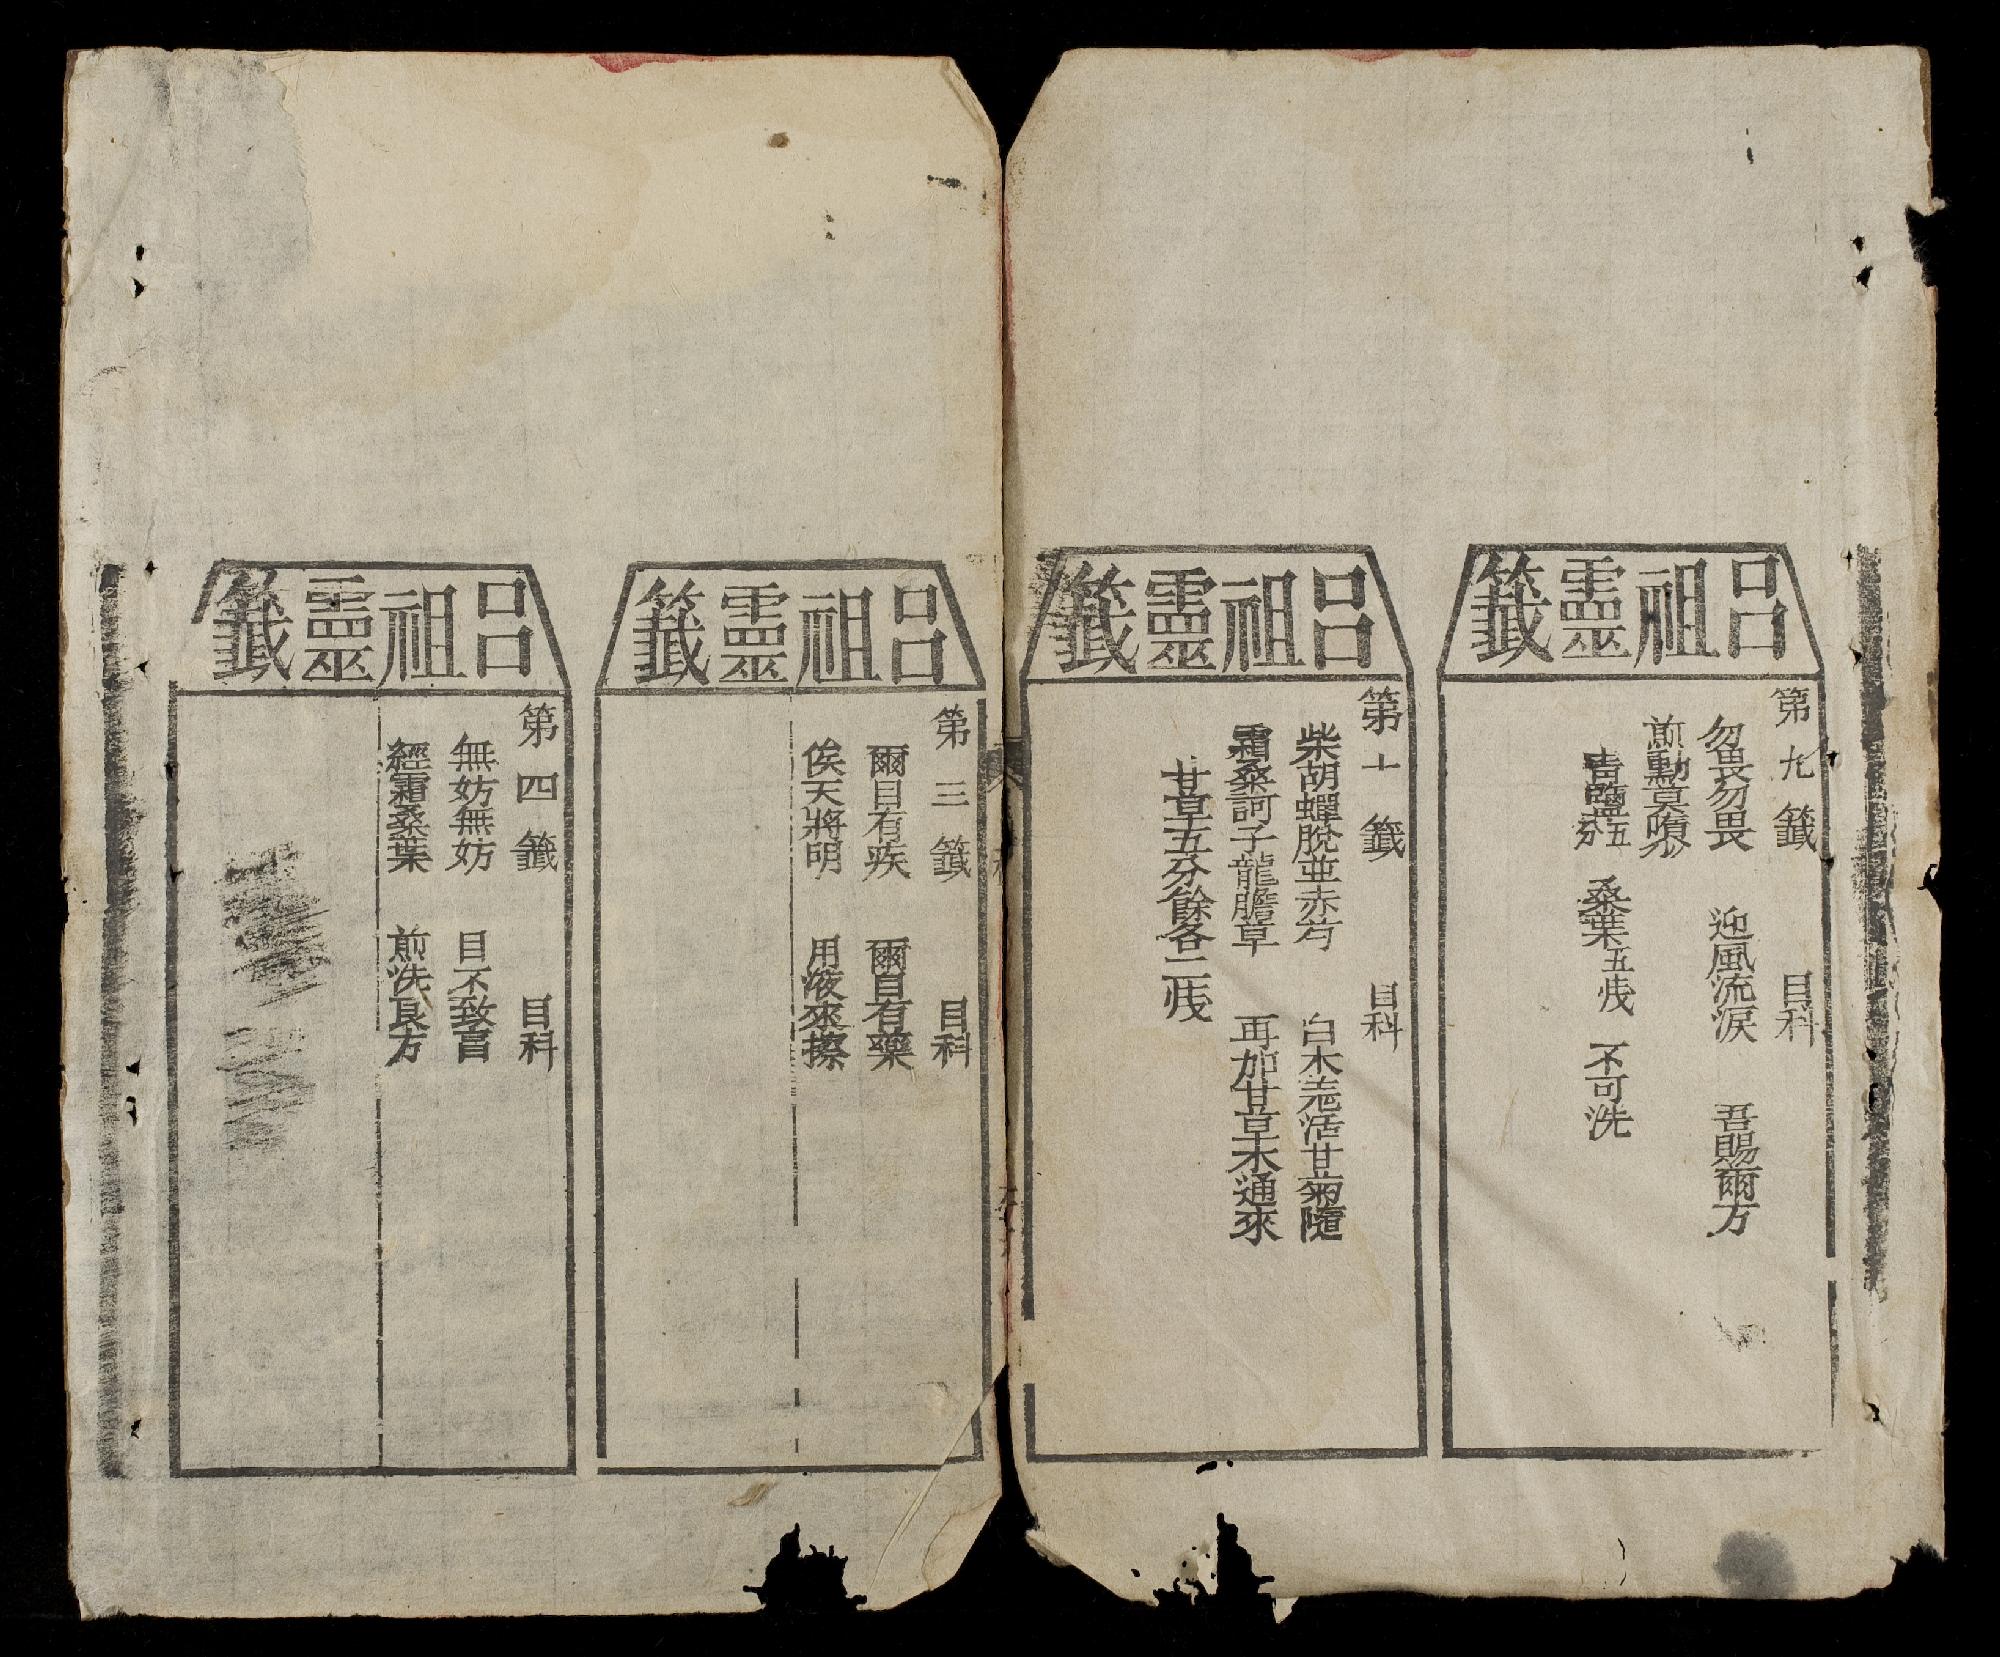 呂祖靈籤
第九籤 目科
勿畏勿畏 迎風流淚 吾賜爾方
煎勳莫隳
青鹽五分 桑葉五戔 不可洗
呂祖靈籤
第十籤 目科
柴胡蟬脫並赤芍 白木羗活甘菊隨
霜桑訶子龍膽草 再加甘草木通來
甘草五分餘各二戔
呂祖靈籤
第三籤 目科
爾目有疾 爾自有藥
俟天將明 用液來擦
呂祖靈籤
第四籤 目科
無妨無妨 目不致盲
經霜桑葉 煎洗良方